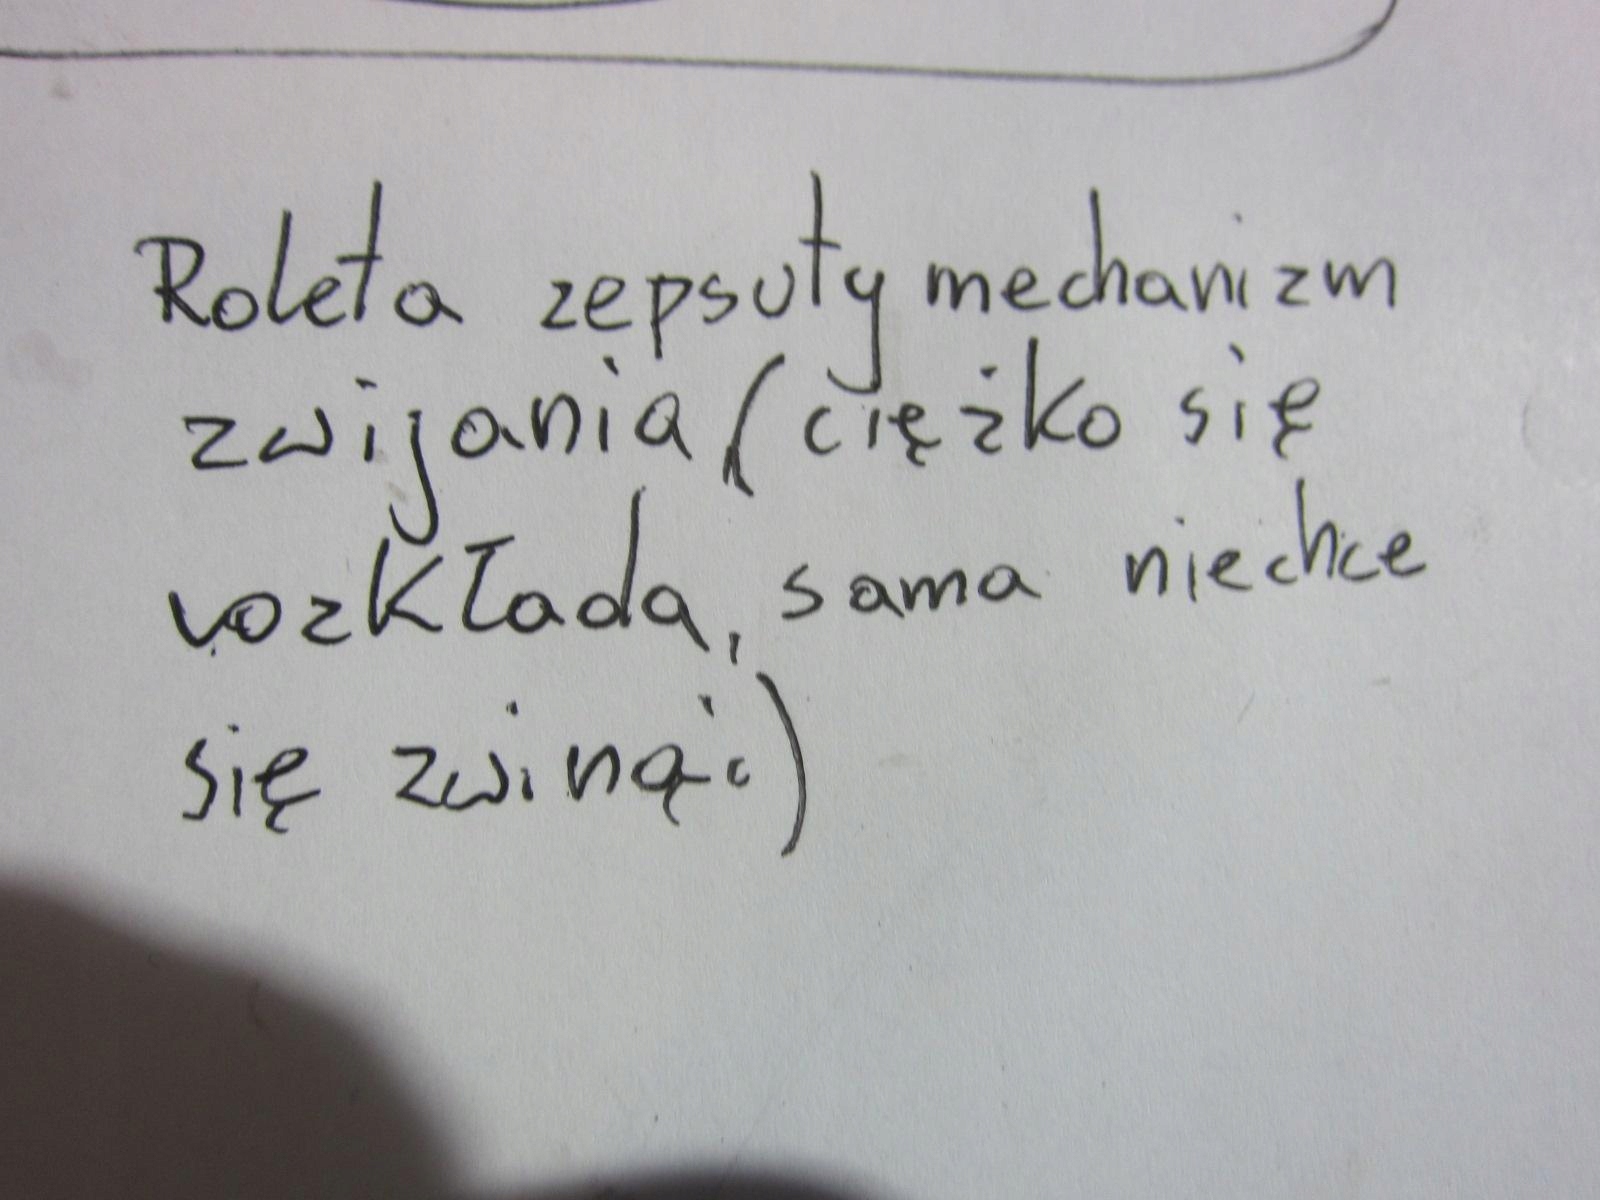 Roleta zepsuty mechanizm
zwijania (ciężko się
rozkłada, sama niechce
się zwinąć)